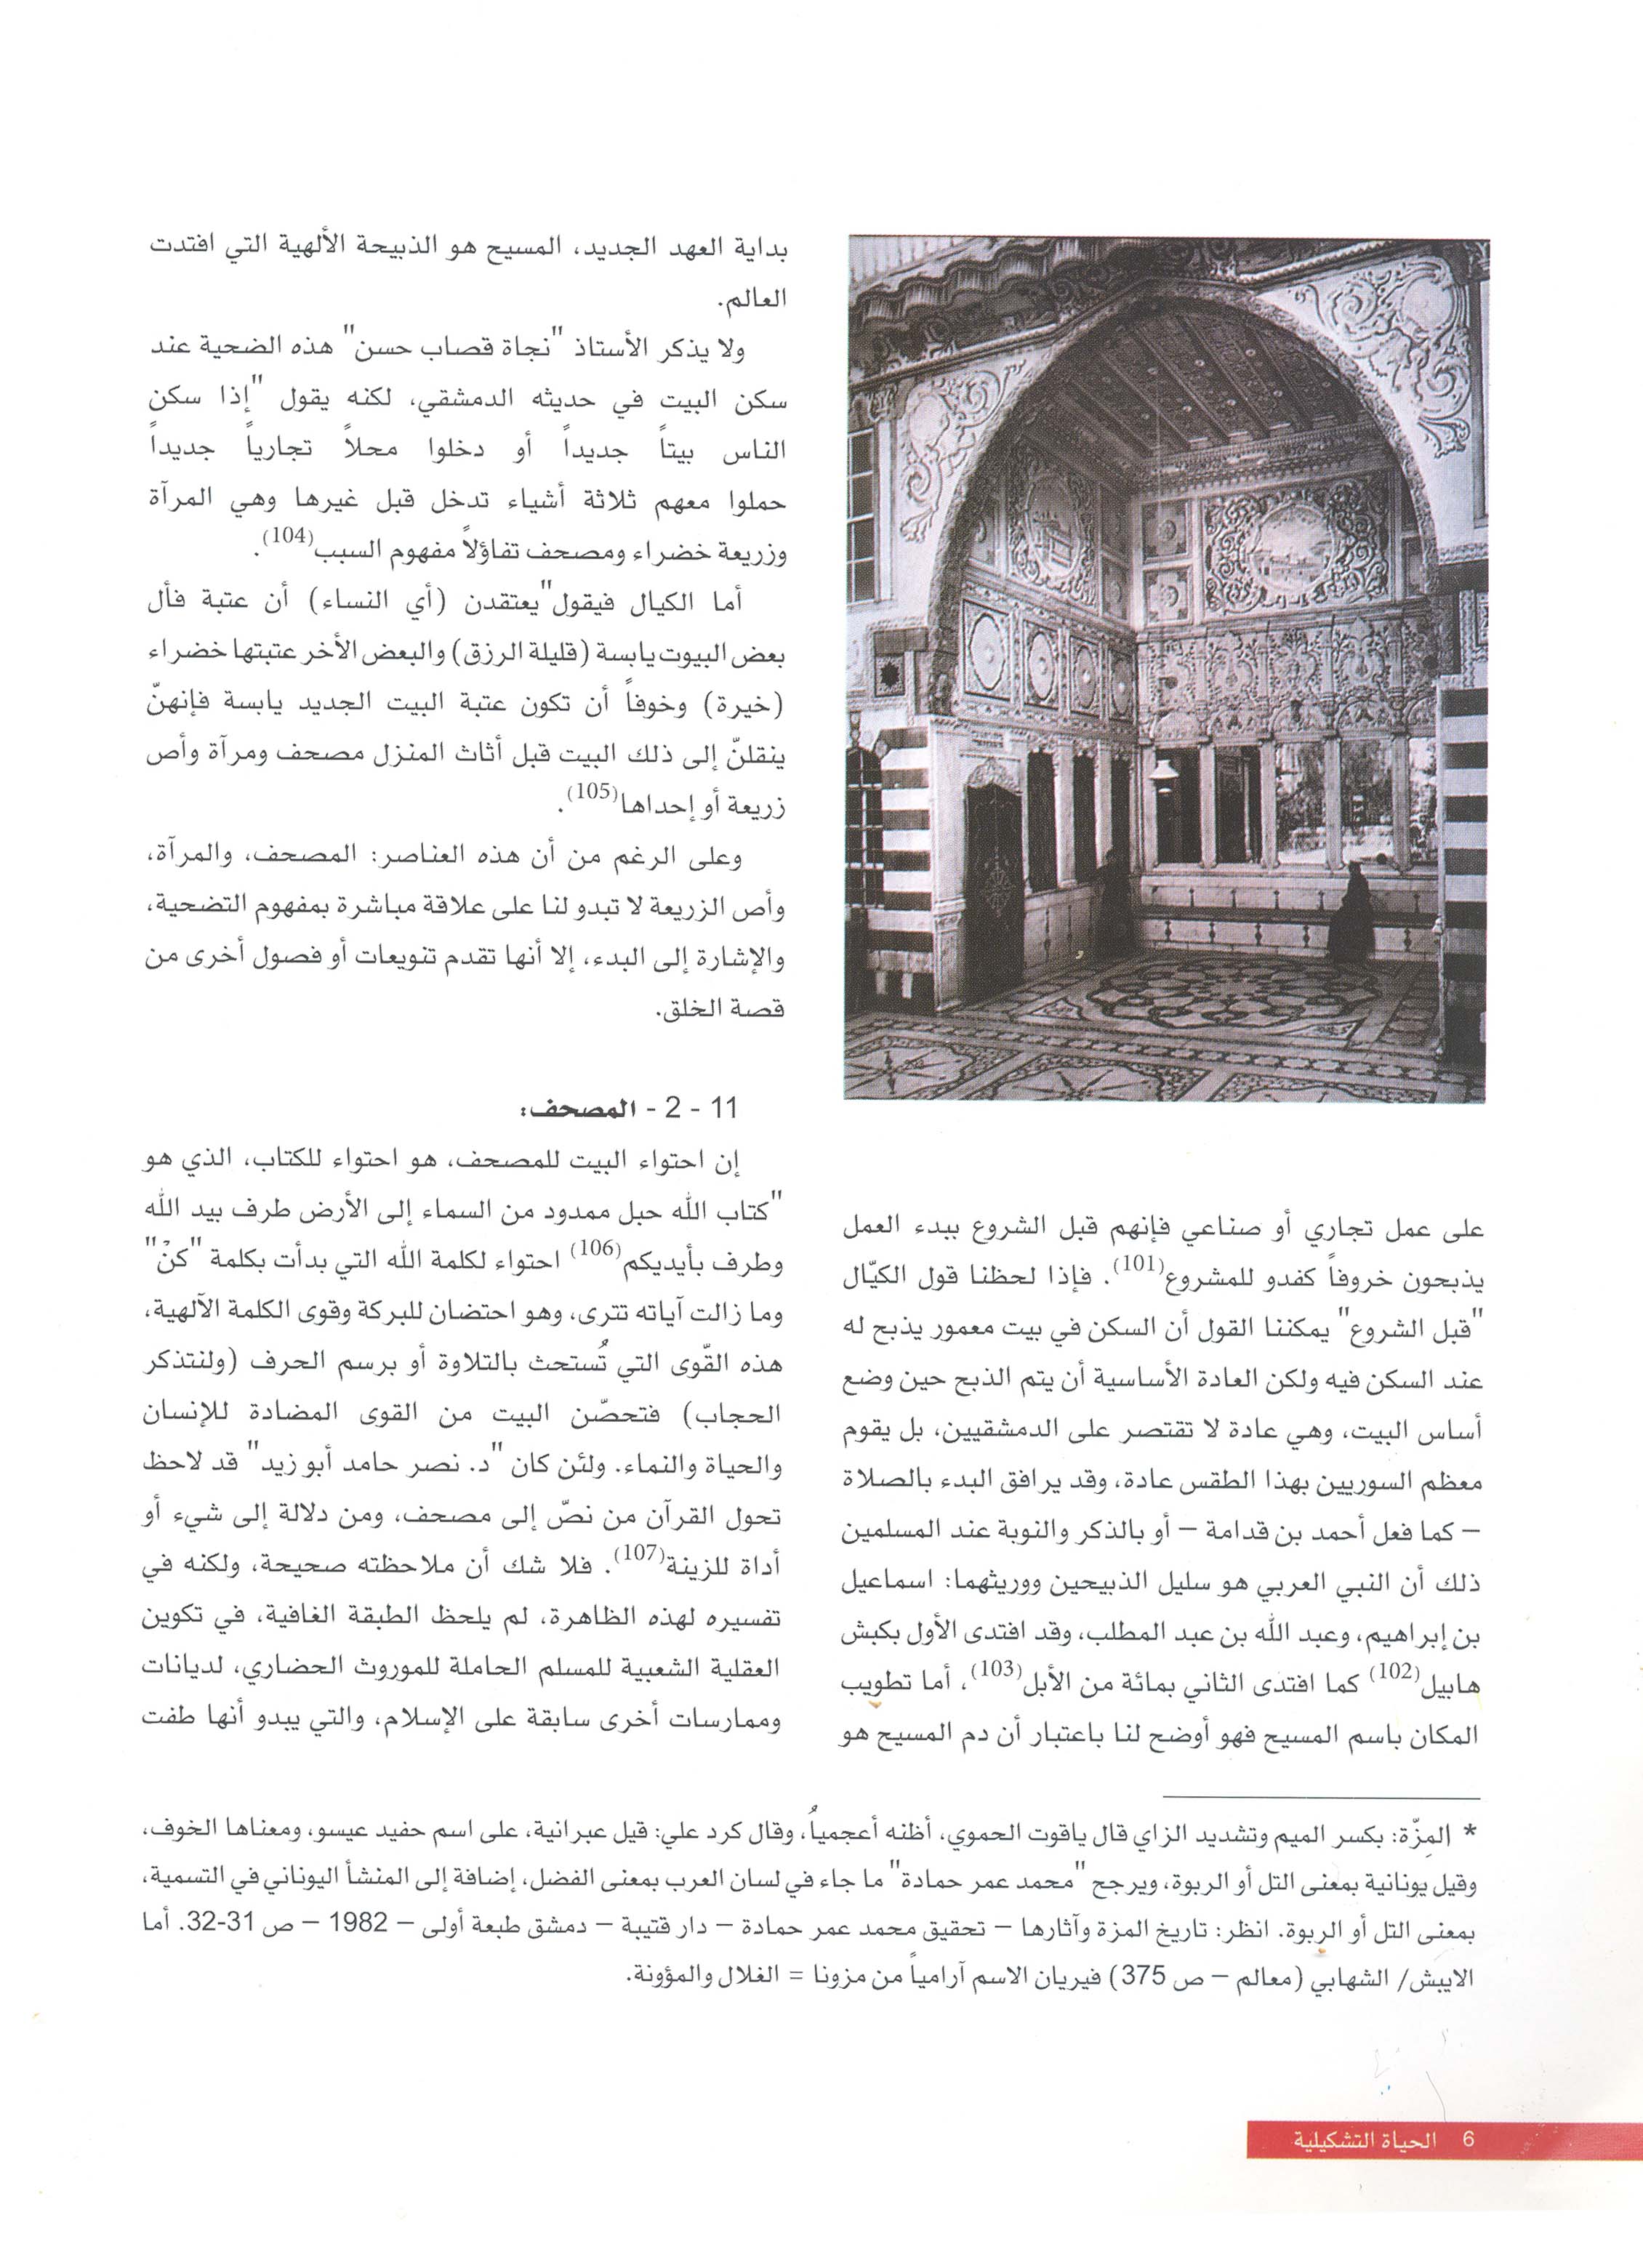 على عمل تجاري أو صناعي فإنهم قبل الشروع ببدء العمل
يذبحون خروفاً كفدو للمشروع(101). فإذا لحظنا قول الكيّال
"قبل الشروع" يمكننا القول أن السكن في بيت معمور يذبح له
عند السكن فيه ولكن العادة الأساسية أن يتم الذبح حين وضع
أساس البيت، وهي عادة لا تقتصر على الدمشقيين، بل يقوم
معظم السوريين بهذا الطقس عادة، وقد يرافق البدء بالصلاة
– كما فعل أحمد بن قدامة – أو بالذكر والنوبة عند المسلمين
ذلك أن النبي العربي هو سليل الذبيحين ووريثهما: اسماعيل
بن إبراهيم، وعبد الله بن عبد المطلب، وقد افتدى الأول بكبش
هابيل(102) كما افتدى الثاني بمائة من الأبل(103)، أما تطويب
المكان باسم المسيح فهو أوضح لنا باعتبار أن دم المسيح هو
بداية العهد الجديد، المسيح هو الذبيحة الألهية التي افتدت
العالم.
ولا يذكر الأستاذ "نجاة قصاب حسن" هذه الضحية عند
سكن البيت في حديثه الدمشقي، لكنه يقول "إذا سكن
الناس بيتاً جديداً أو دخلوا محلاً تجارياً جديداً
حملوا معهم ثلاثة أشياء تدخل قبل غيرها وهي المرآة
وزريعة خضراء ومصحف تفاؤلاً مفهوم السبب(104).
أما الكيال فيقول"يعتقدن (أي النساء) أن عتبة فأل
بعض البيوت يابسة (قليلة الرزق) والبعض الأخر عتبتها خضراء
(خيرة) وخوفاً أن تكون عتبة البيت الجديد يابسة فإنهنّ
ينقلنّ إلى ذلك البيت قبل أثاث المنزل مصحف ومرآة وأص
زريعة أو إحداها(105).
وعلى الرغم من أن هذه العناصر: المصحف، والمرآة،
وأص الزريعة لا تبدو لنا على علاقة مباشرة بمفهوم التضحية،
والإشارة إلى البدء، إلا أنها تقدم تنويعات أو فصول أخرى من
قصة الخلق.
11 - 2 - المصحف:
إن احتواء البيت للمصحف، هو احتواء للكتاب، الذي هو
"كتاب الله حبل ممدود من السماء إلى الأرض طرف بيد الله
وطرف بأيديكم(106) احتواء لكلمة الله التي بدأت بكلمة "كنْ"
وما زالت آياته تترى، وهو احتضان للبركة وقوى الكلمة الآلهية،
هذه القّوى التي تُستحث بالتلاوة أو برسم الحرف (ولنتذكر
الحجاب) فتحصّن البيت من القوى المضادة للإنسان
والحياة والنماء. ولئن كان "د. نصر حامد أبو زيد" قد لاحظ
تحول القرآن من نصّ إلى مصحف، ومن دلالة إلى شيء أو
أداة للزينة(107). فلا شك أن ملاحظته صحيحة، ولكنه في
تفسيره لهذه الظاهرة، لم يلحظ الطبقة الغافية، في تكوين
العقلية الشعبية للمسلم الحاملة للموروث الحضاري، لديانات
وممارسات أخرى سابقة على الإسلام، والتي يبدو أنها طفت
* المِزّة: بكسر الميم وتشديد الزاي قال ياقوت الحموي، أظنه أعجمياُ، وقال كرد علي: قيل عبرانية، على اسم حفيد عيسو، ومعناها الخوف،
وقيل يونانية بمعنى التل أو الربوة، ويرجح "محمد عمر حمادة" ما جاء في لسان العرب بمعنى الفضل، إضافة إلى المنشأ اليوناني في التسمية،
بمعنى التل أو الربوة. انظر: تاريخ المزة وآثارها – تحقيق محمد عمر حمادة – دار قتيبة – دمشق طبعة أولى – 1982 – ص 31-32. أما
الايبش/ الشهابي (معالم – ص 375) فيريان الاسم آرامياً من مزونا = الغلال والمؤونة.
6 الحياة التشكيلية